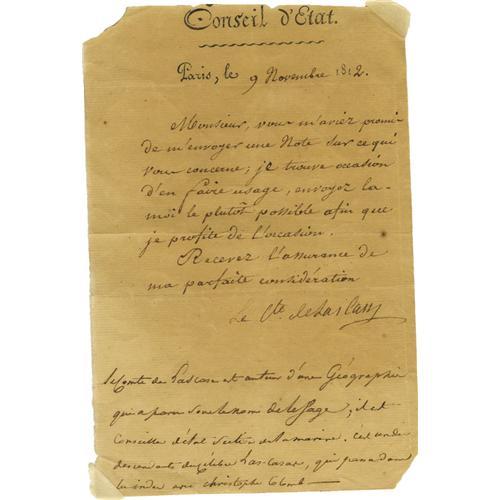 Conseil d'Etat.
Paris, le 9 Novembre 1812.
Monsieur, vous m'aviez promis
de m'envoyer une Note sur ce qui
vous concerne; je trouve occasion
d'en faire usage, envoyez la-
moi le plutôt possible afin que
je profite de l'occasion.
Recevez l'assurance de
ma parfaite considération
Le Cte. de Las Cases
le Comte de Lascase est auteur d'une Géographie
qui a paru sous le nom de le Sage; il est
Conseiller d'état section de la marine. c'est un des
descendants du célèbre Las-Casas, qui passa dans
les indes avec christophe Colomb